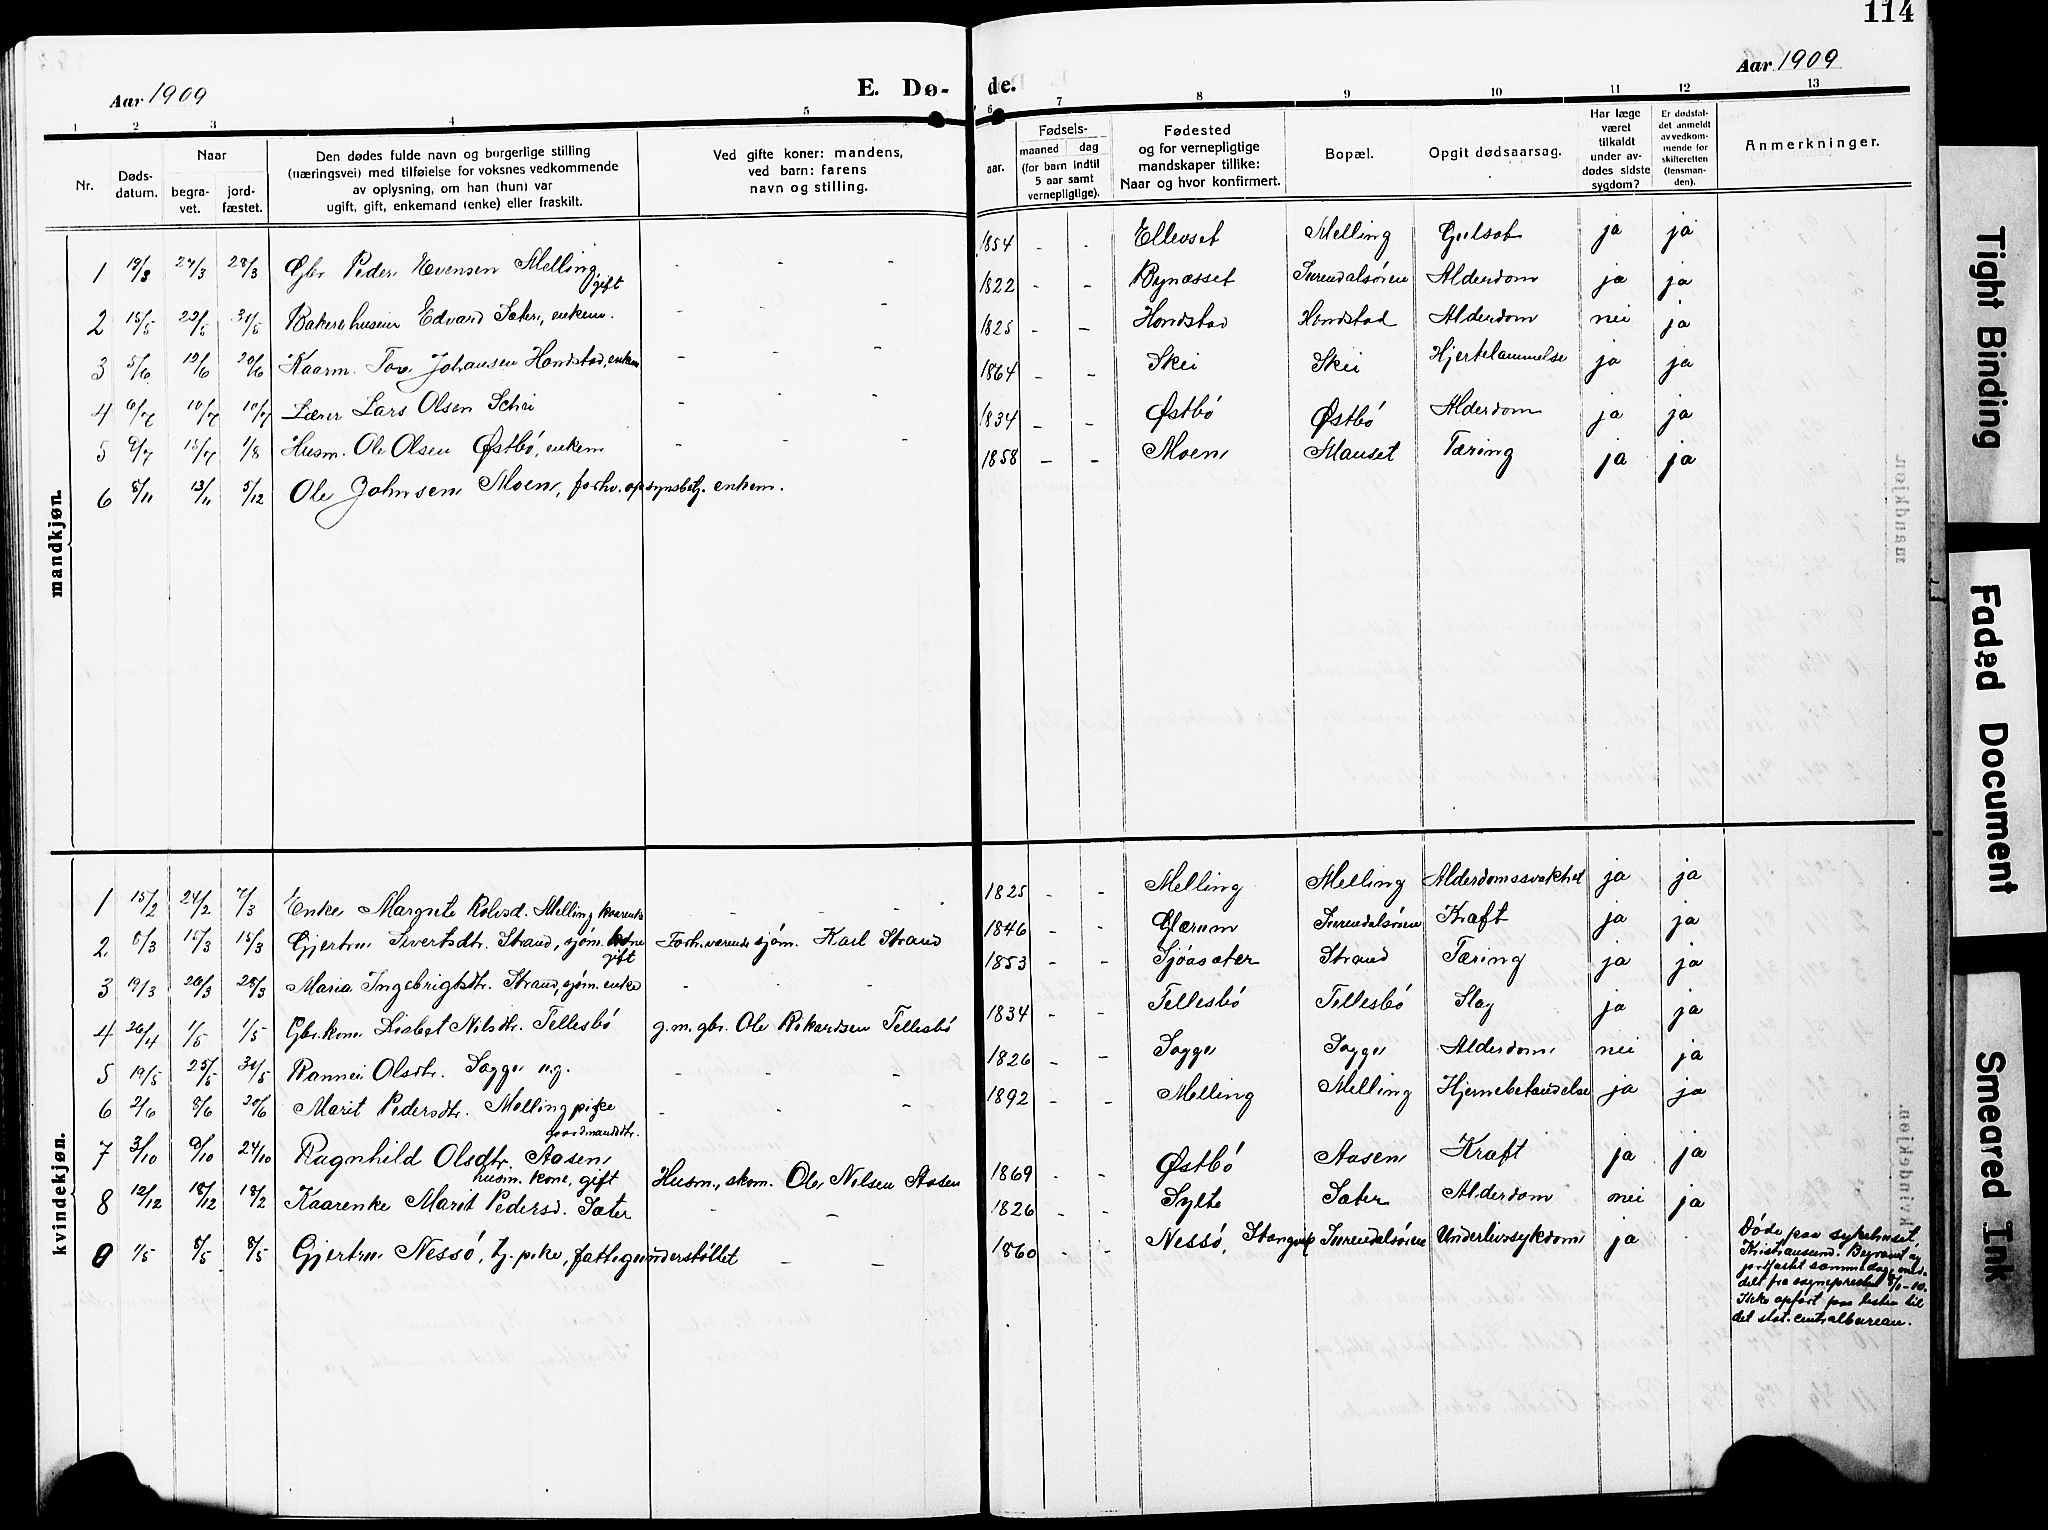 114
Aar 1909
E. Dø-
de.
Aar 1909
1 2 3 4 5
6 7 8 9 10 11 12 13
Nr.
Døds-
datum.
Naar
begra-
vet.
jord-
fæstet.
Den dødes fulde navn og borgerlige stilling
(næringsvei) med tilføielse for voksnes vedkommende
av oplysning, om han (hun) var
ugift, gift, enkemand (enke) eller fraskilt.
Ved gifte koner: mandens,
ved barn: farens
navn og stilling.
aar.
Fødsels-
maaned dag
(for barn indtil
5 aar samt
vernepligtige).
Fødested
og for vernepligtige
mandskaper tillike:
Naar og hvor konfirmert.
Bopæl.
Opgit dødsaarsag.
Har læge
været
tilkaldt
under av-
dødes sidste
sygdom?
Er dødsfal-
det anmeldt
av vedkom-
mende for
skifteretten
(lensman-
den).
Anmerkninger.
mandkjøn.
1 19/3 27/3 28/3 Gbr Peder Evensen Melling, - - - 1854 - - Ellevset Melling Gulsot ja ja
gift
2 15/5 22/5 31/5 Edvard Sæter, enkem. - - - 1822 - - Bynæsset Surendalsøren Alderdom ja ja
3 5/6 12/6 20/6 Kaarm. Tore Johansen Honstad, enkem - - - 1825 - - Honstad Honstad Alderdom nei ja
4 6/7 10/7 10/7 Lærer Lars Olsen Schei - - - 1864 - - Skei Skei Hjertelammelse ja ja
5 9/7 15/7 1/8 Husm. Ole Olsen Østbö, enkem - - - 1834 - - Østbö Østbö Alderdom ja ja
6 8/11 13/11 5/12 Ole Johnsen Moen, forhv. opsynsbetj. enkem. 1858 - - Moen Mauset Tæring ja ja
kvindekjøn.
1 15/2 24/2 7/3 Enke Margrete Rolvsd. Melling kaarenke - - - - 1825 - - Melling Melling Alderdomssvakhet ja ja
2. 8/3 15/3 15/3 Gjertru Sivertsdtr. Strand, sjøm. kone Forhværende sjøm. Karl Strand 1846 - - Surendalsøren Kræft ja ja
gift
3 19/3 28/3 28/3 Maria Ingebrigtsdtr. Strand, sjøm. enke - - - 1853 - - Sjöasæter Strand Tæring ja ja
4 26/4 1/5 1/5 Gbr.kone Lisbet Nilsdtr. Tellesbö g.m. gbr. Ole Rikardsen Tellesbö 1834 - - Tellesbö Tellesbö Slag ja ja
5 19/5 25/5 30/5 Rannei Olsdtr. Sogge ug. - - - 1826 - - Sogge Sogge Alderdom nei ja
6 2/6 8/6 20/6 Marit Pedersdtr. Melling pike - - - 1892 - - Melling Melling Hjernebetændelse ja ja
gaardmandsdtr.
7 3/10 9/10 24/10 Ragnhild Olsdtr. Aasen, Husm., skom. Ole Nilsen Aasen 1869 - - Østbö Aasen Kræft ja ja
husm. kone, gift
8 12/12 18/12 18/2 Kaarenke Marit Pedersd. Sæter - - 1826 - - Sylte Sæter Alderdom nei ja
9 1/5 8/5 8/5 Gjertru Nessö, tj. pike, fattigunderstöttet - - 1860 - - Nessö, Stangvik Surendalsøren Underlivssykdom ja -
Döde paa sykehuset,
Kristiansund. Begravet og
jordfæstet samme dag, med-
delt fra sogneprest 8/1-10.
Ikke opfört paa listen til
det stat. centralbureau.
mandkjøn.
kvindekjøn.
Tight Binding
Faded Document
Smeared Ink